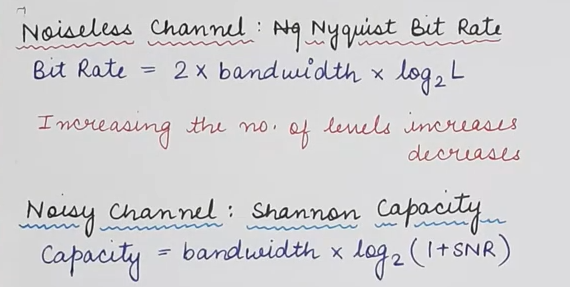 Noiseless Channel : Nq Nyquist Bit Rate
Bit Rate = 2 × bandwidth × log₂ L
Increasing the no. of levels increases
decreases
Noisy Channel : Shannon Capacity
Capacity = bandwidth × log₂ (1+SNR)